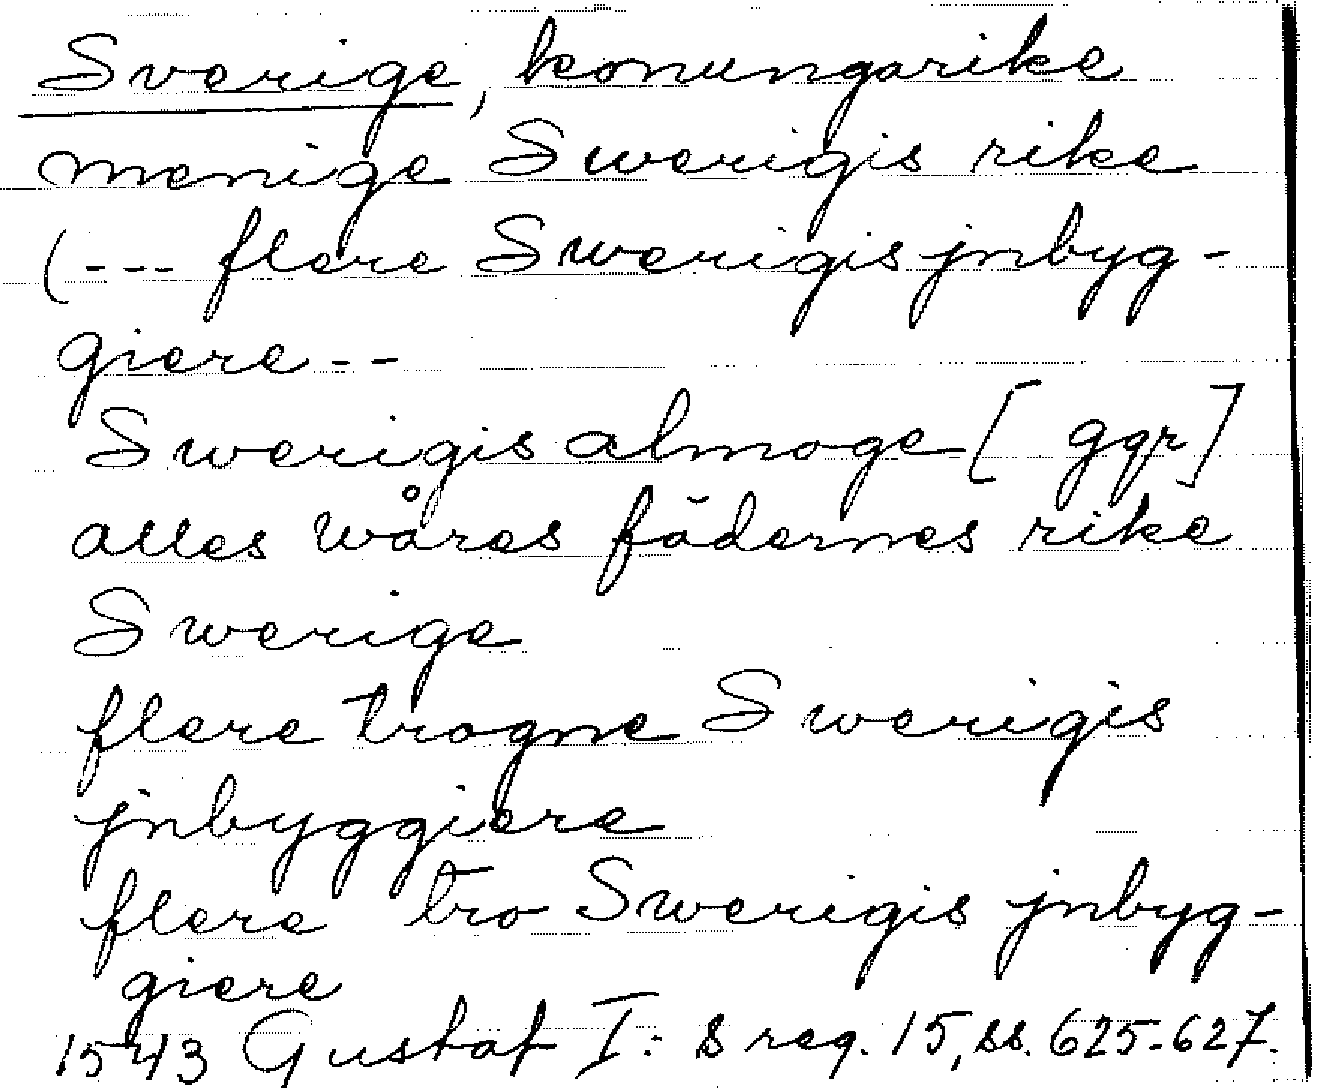 Sverige, konungarike
menige Swerigis rike
(--- flere Swerigis jnbyg-
giere--
Swerigis almoge [ ggr]
alles wåres fādernes rike
Swerige
flere trogne Swerigis
jnbyggiere
flere tro Swerigis jnbyg-
giere
1543 Gustaf I:s reg. 15, ss. 625-627.